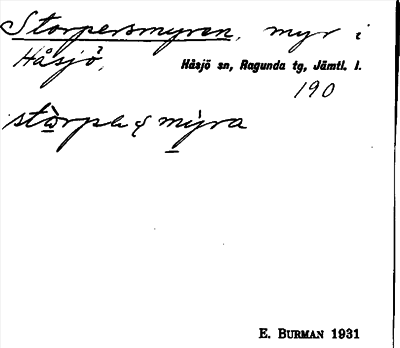 Storpersmyren, myr i
Håsjö, Håsjö sn, Ragunda tg, Jämtl. l.
190
E. BURMAN 1931